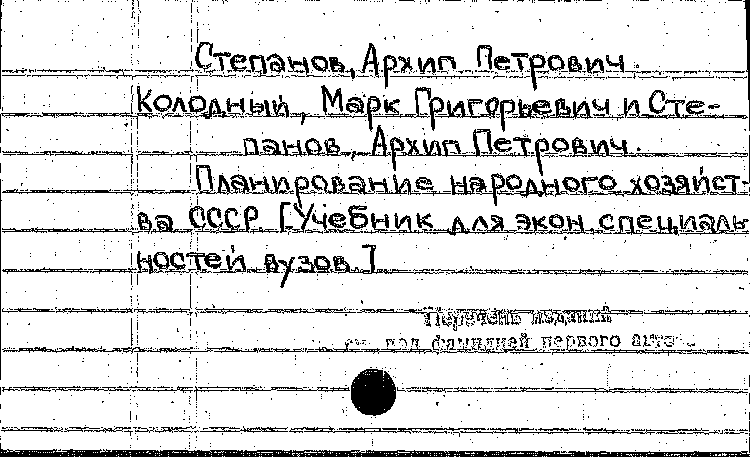 Степанов, Архип Петрович.
Колодный, Марк Григорьевич и Сте-
панов, Архип Петрович.
Планирование народного хозяйст-
ва СССР. [Учебник для экон. специаль-
ностей вузов.]
Перечень изданий
см. под фамилией первого автора